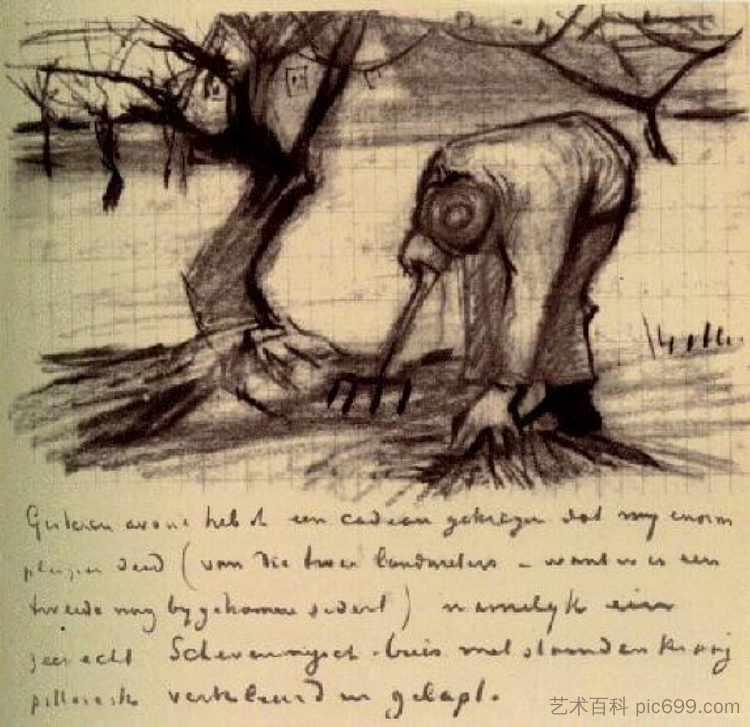 Gisteren avond heb ik een cadeau gekregen dat mij enorm
plezier deed (van die twee landmeters – want er is een
tweede nog bygekomen sedert) namelijk een
zeer echt Schevenings buis met staande kraag
pittoresk verkleurd en gelapt.
艺术百科 pic699.com